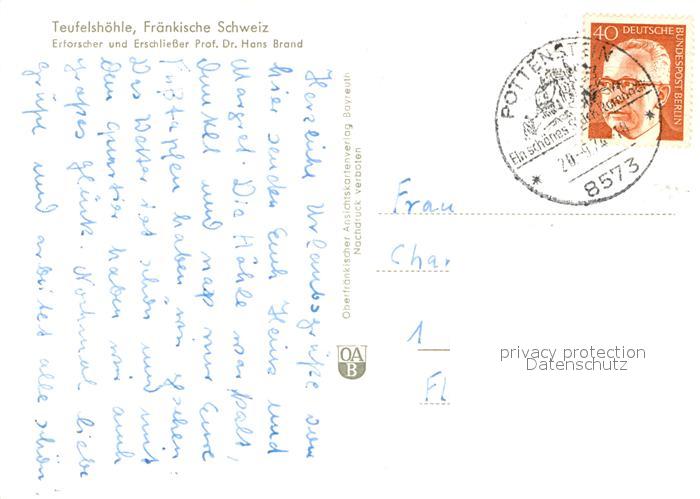 Teufelshöhle, Fränkische Schweiz
Erforscher und Erschließer Prof. Dr. Hans Brand
Herzliche Urlaubsgrüße von
hier senden Euch Heinz und
Margot. Die Höhle war kalt,
dunkel und nass nur Eure
Fußstapfen haben wir gesehen
Das Wetter ist schön und mit
dem Quartier haben wir auch
großes Glück. Nochmal liebe
Grüße und arbeitet alle schön.
Oberfränkischer Ansichtskartenverlag Bayreuth
Nachdruck verboten
OA
B
POTTENSTEIN
Ein schönes Stück
8573
40 DEUTSCHE
BUNDESPOST BERLIN
Frau
Char
1
Fl
privacy protection
Datenschutz